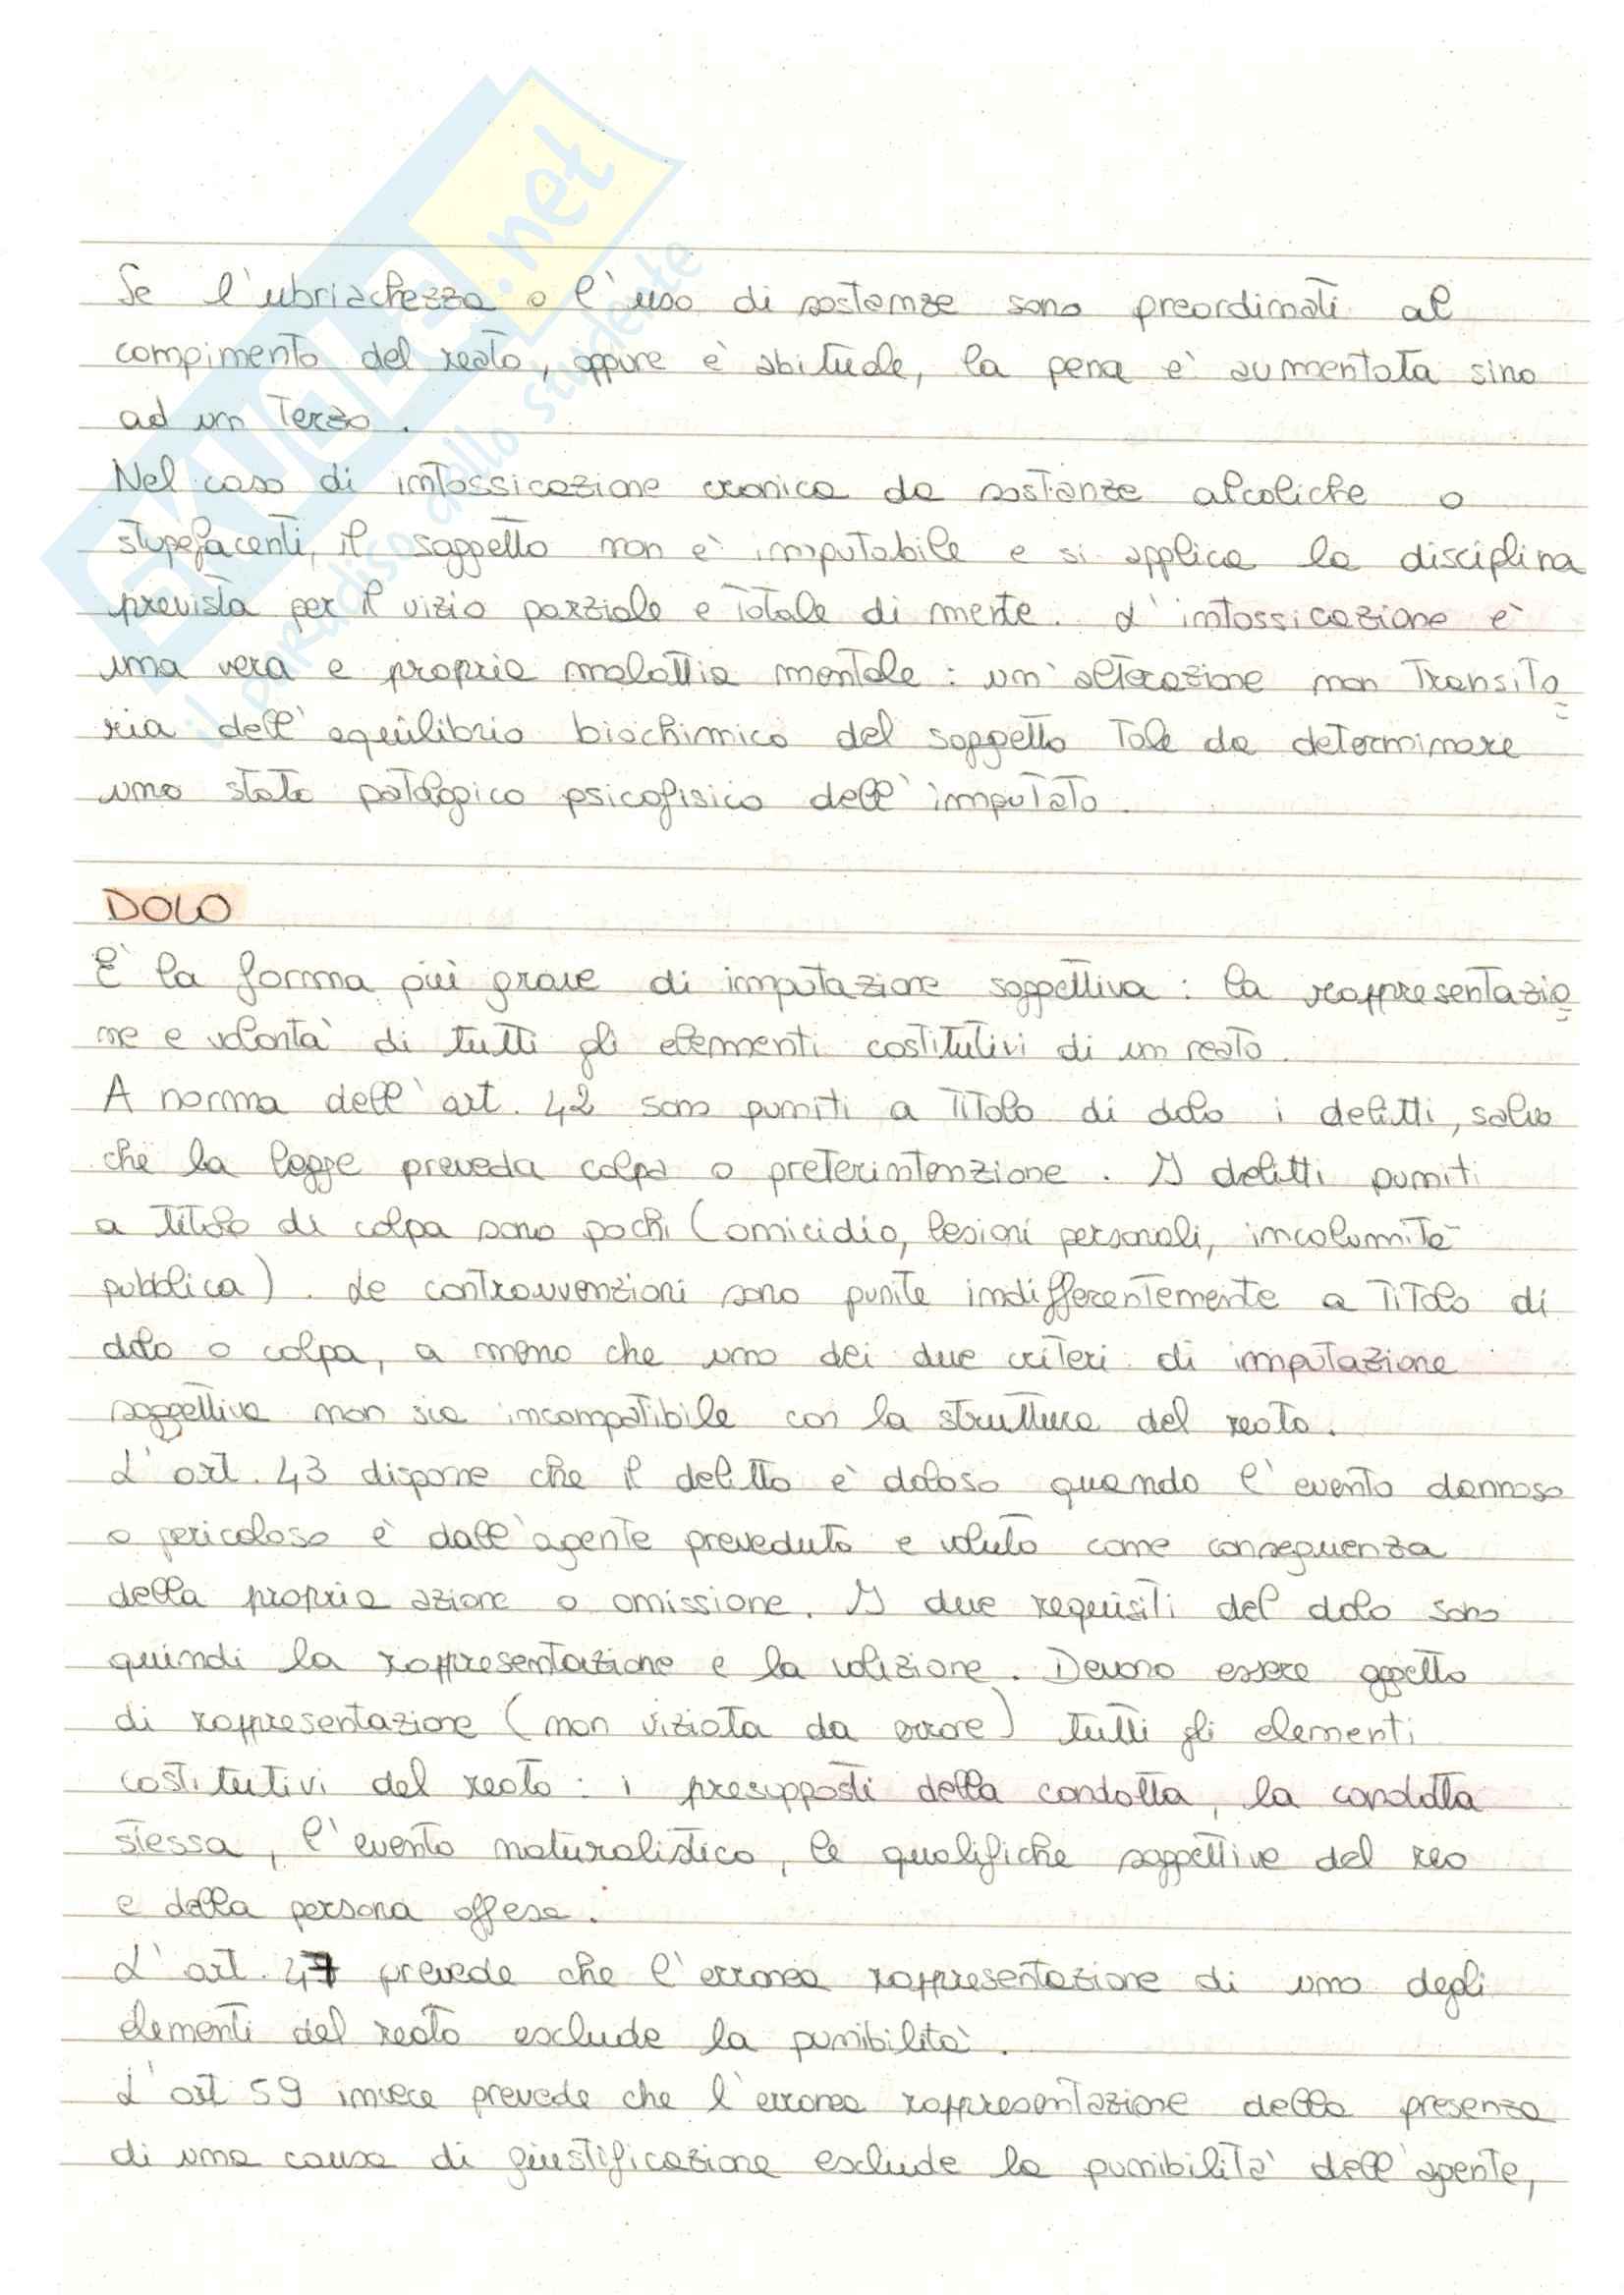 SKUOLA.net
il paradiso dello studente
Se l'ubriachezza o l'uso di sostanze sono preordinati al
compimento del reato, oppure è abituale, la pena è aumentata sino
ad un terzo.
Nel caso di intossicazione cronica da sostanze alcoliche o
stupefacenti, il soggetto non è imputabile e si applica la disciplina
prevista per il vizio parziale e totale di mente. L'intossicazione è
una vera e propria malattia mentale: un'alterazione non transito=
ria dell'equilibrio biochimico del soggetto tale da determinare
uno stato patologico psicofisico dell'imputato.
DOLO
È la forma più grave di imputazione soggettiva: la rappresentazio=
ne e volontà di tutti gli elementi costitutivi di un reato.
A norma dell'art. 42 sono puniti a titolo di dolo i delitti, salvo
che la legge preveda colpa o preterintenzione. I delitti puniti
a titolo di colpa sono pochi (omicidio, lesioni personali, incolumità
pubblica). Le contravvenzioni sono punite indifferentemente a titolo di
dolo o colpa, a meno che uno dei due criteri di imputazione
soggettiva non sia incompatibile con la struttura del reato.
L'art. 43 dispone che il delitto è doloso quando l'evento dannoso
o pericoloso è dall'agente preveduto e voluto come conseguenza
della propria azione o omissione. I due requisiti del dolo sono
quindi la rappresentazione e la volizione. Devono essere oggetto
di rappresentazione (non viziata da errore) tutti gli elementi
costitutivi del reato: i presupposti della condotta, la condotta
stessa, l'evento naturalistico, le qualifiche soggettive del reo
e della persona offesa.
L'art. 47 prevede che l'erronea rappresentazione di uno degli
elementi del reato esclude la punibilità.
L'art 59 invece prevede che l'erronea rappresentazione della presenza
di una causa di giustificazione esclude la punibilità dell'agente,